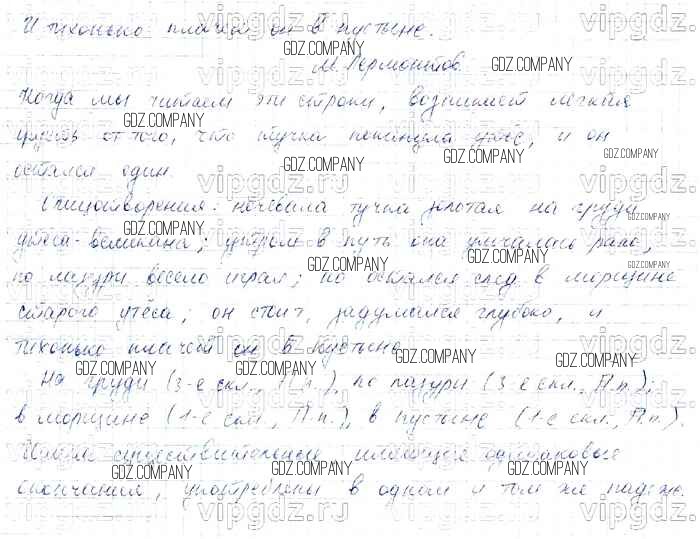 И тихонько плачет он в пустыне.
М. Лермонтов.
Когда мы читаем эти строки, возникает лёгкая
грусть от того, что тучка покинула утёс, и он
остался один.
Олицетворения: ночевала тучка золотая на груди
утёса-великана; утром в путь она умчалась рано,
по лазури весело играя; но остался след в морщине
старого утёса; он стоит, задумался глубоко, и
тихонько плачет он в пустыне.
На груди (3-е скл., П.п.), по лазури (3-е скл., П.п.);
в морщине (1-е скл., П.п.), в пустыне (1-е скл., П.п.).
существительные имеющие одинаковые
окончания, употреблены в одном и том же падеже.
GDZ.COMPANY
vipgdz.ru